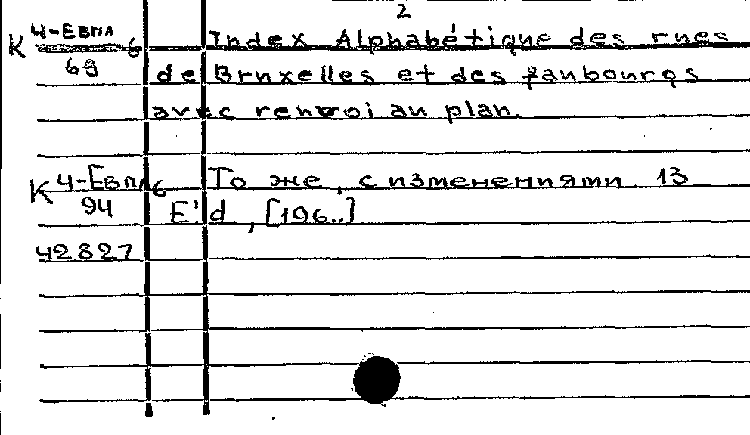 2
К 4-Евпл 6 Index Alphabétique des rues
69 de Bruxelles et des faubourgs
avec renvoi au plan.
К 4-Евпл 6 То же, с изменениями. 13
94 E'd, [196..]
42827